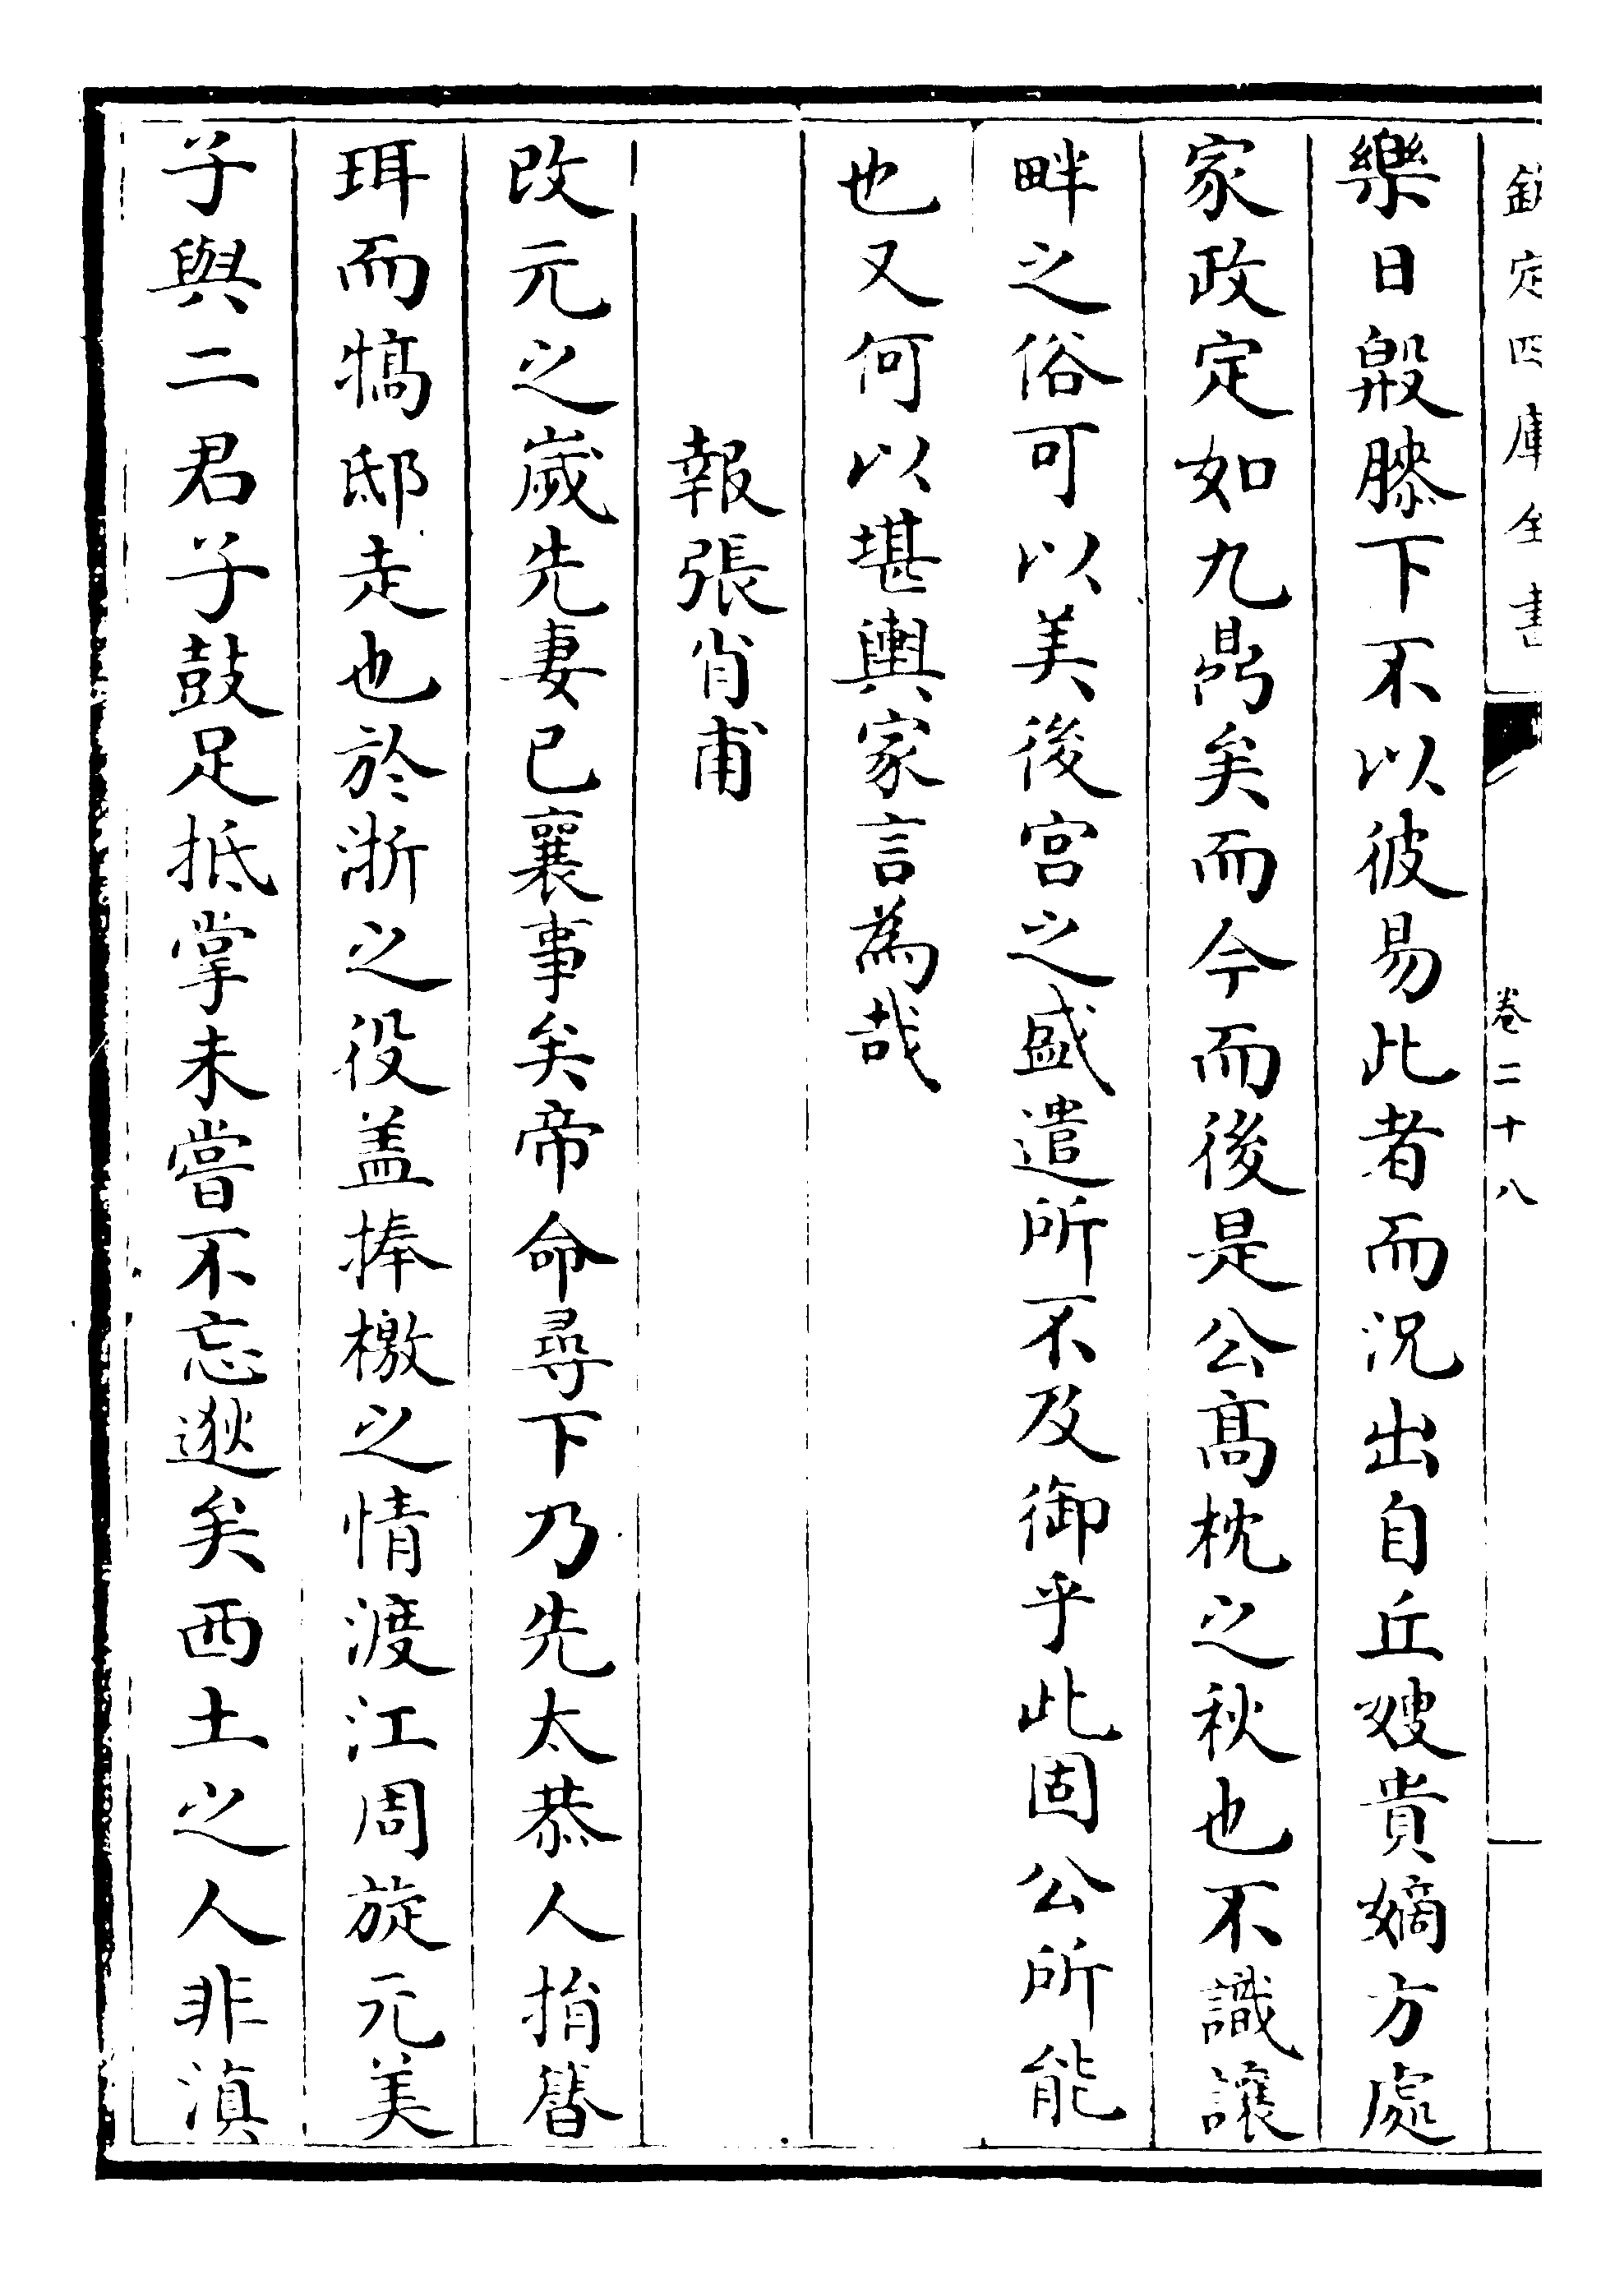 欽定四庫全書
卷二十八
樂日毀膝下不以彼易此者而況出自丘嫂貴嫡方處
家政定如九鼎矣而今而後是公髙枕之秋也不識讓
畔之俗可以美後宮之盛遣所不及御乎此固公所能
也又何以堪輿家言為哉
報張肖甫
改元之歲先妻已襄事矣帝命尋下乃先太恭人捐簮
珥而犒邸走也於浙之役盖捧檄之情渡江周旋元美
子與二君子鼓足抵掌未嘗不忘逖矣西土之人非滇